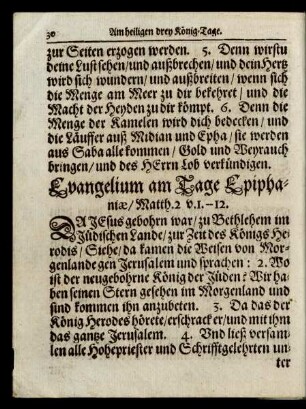 30 Am heiligen drey König-Tage.
zur Seiten erzogen werden. 5. Denn wirstu
deine Lust sehen/ und außbrechen/ und dein Hertz
wird sich wundern/ und außbreiten/ wenn sich
die Menge am Meer zu dir bekehret/ und die
Macht der Heyden zu dir kömpt. 6. Denn die
Menge der Kamelen wird dich bedecken/ und
die Läuffer auß Midian und Epha/ sie werden
aus Saba alle kommen/ Gold und Weyrauch
bringen/ und des HErrn Lob verkündigen.
Evangelium am Tage Epipha-
niæ/ Matth. 2 v. 1.-12.
DA JEsus gebohrn war/ zu Bethlehem im
Jüdischen Lande/ zur Zeit des Königs He-
rodis/ Siehe/ da kamen die Weisen von Mor-
genlande gen Jerusalem und sprachen: 2. Wo
ist der neugebohrne König der Jüden? Wir ha-
ben seinen Stern gesehen im Morgenland und
sind kommen ihn anzubeten. 3. Da das der
König Herodes hörete/ erschrack er/ und mit ihm
das gantze Jerusalem. 4. Und ließ versam-
len alle Hohepriester und Schrifftgelehrten un-
ter